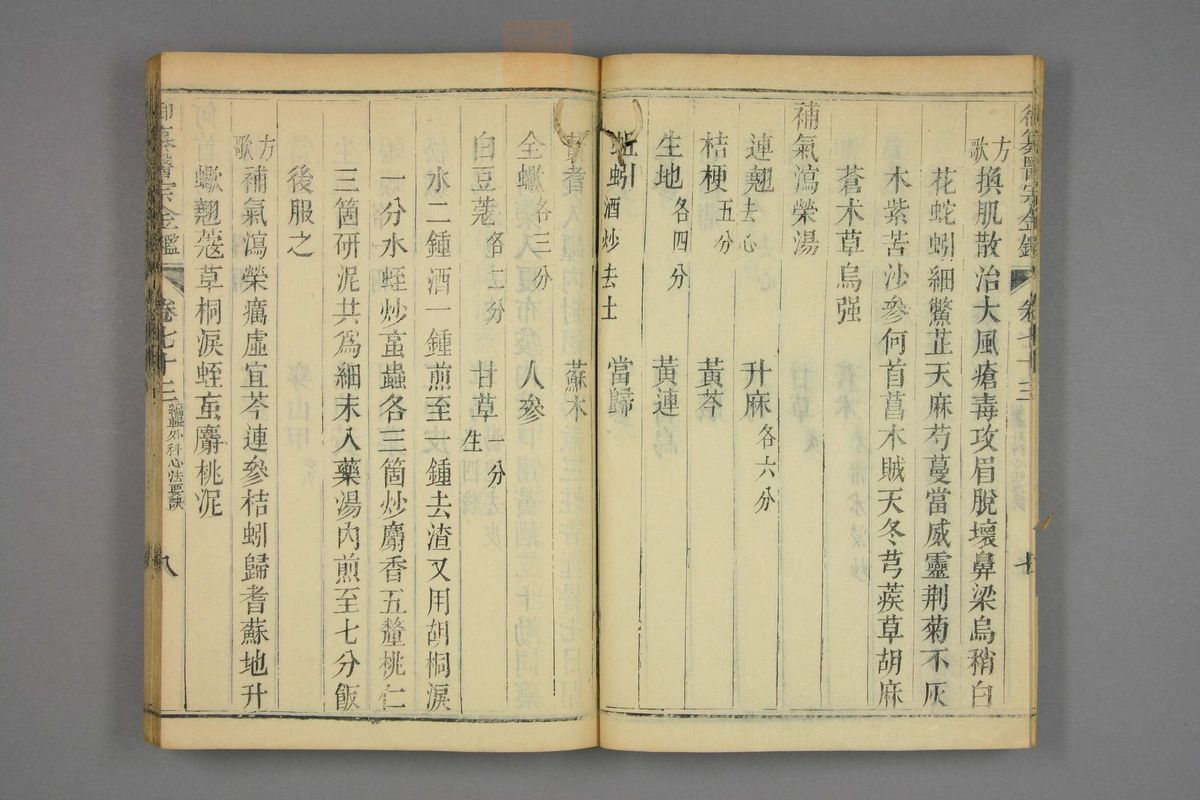 御纂醫宗金鑑 卷七十三 七
方歌 換肌散治大風瘡毒攻眉脫壞鼻梁烏稍白
花蛇蚓細鱉芷天麻芍蔓當威靈荆菊不灰
木紫苦沙參何首菖木賊天冬芎蒺草胡麻
蒼术草烏强
補氣瀉榮湯
連翹去心 升麻各六分
桔梗五分 黃芩
生地各四分 黃連
蚯蚓酒炒去土 當歸
黃耆 蘇木
全蠍各三分 人參
白豆蔻各二分 甘草生一分
水二鍾酒一鍾煎至一鍾去渣又用胡桐淚
一分水蛭炒䖟蟲各三箇炒麝香五釐桃仁
三箇研泥共爲細末入藥湯內煎至七分飯
後服之
方歌 補氣瀉榮癘虛宜芩連參桔蚓歸耆蘇地升
蠍翹蔻草桐淚蛭䖟麝桃泥
御纂醫宗金鑑 卷七十三 編輯外科心法要訣 八